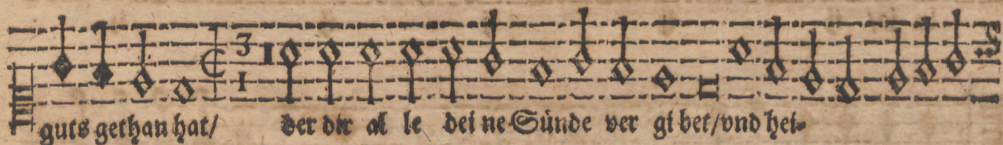 3
1
guts gethan hat/ der dir al le dei ne Sünde ver gi bet/vnd hei-